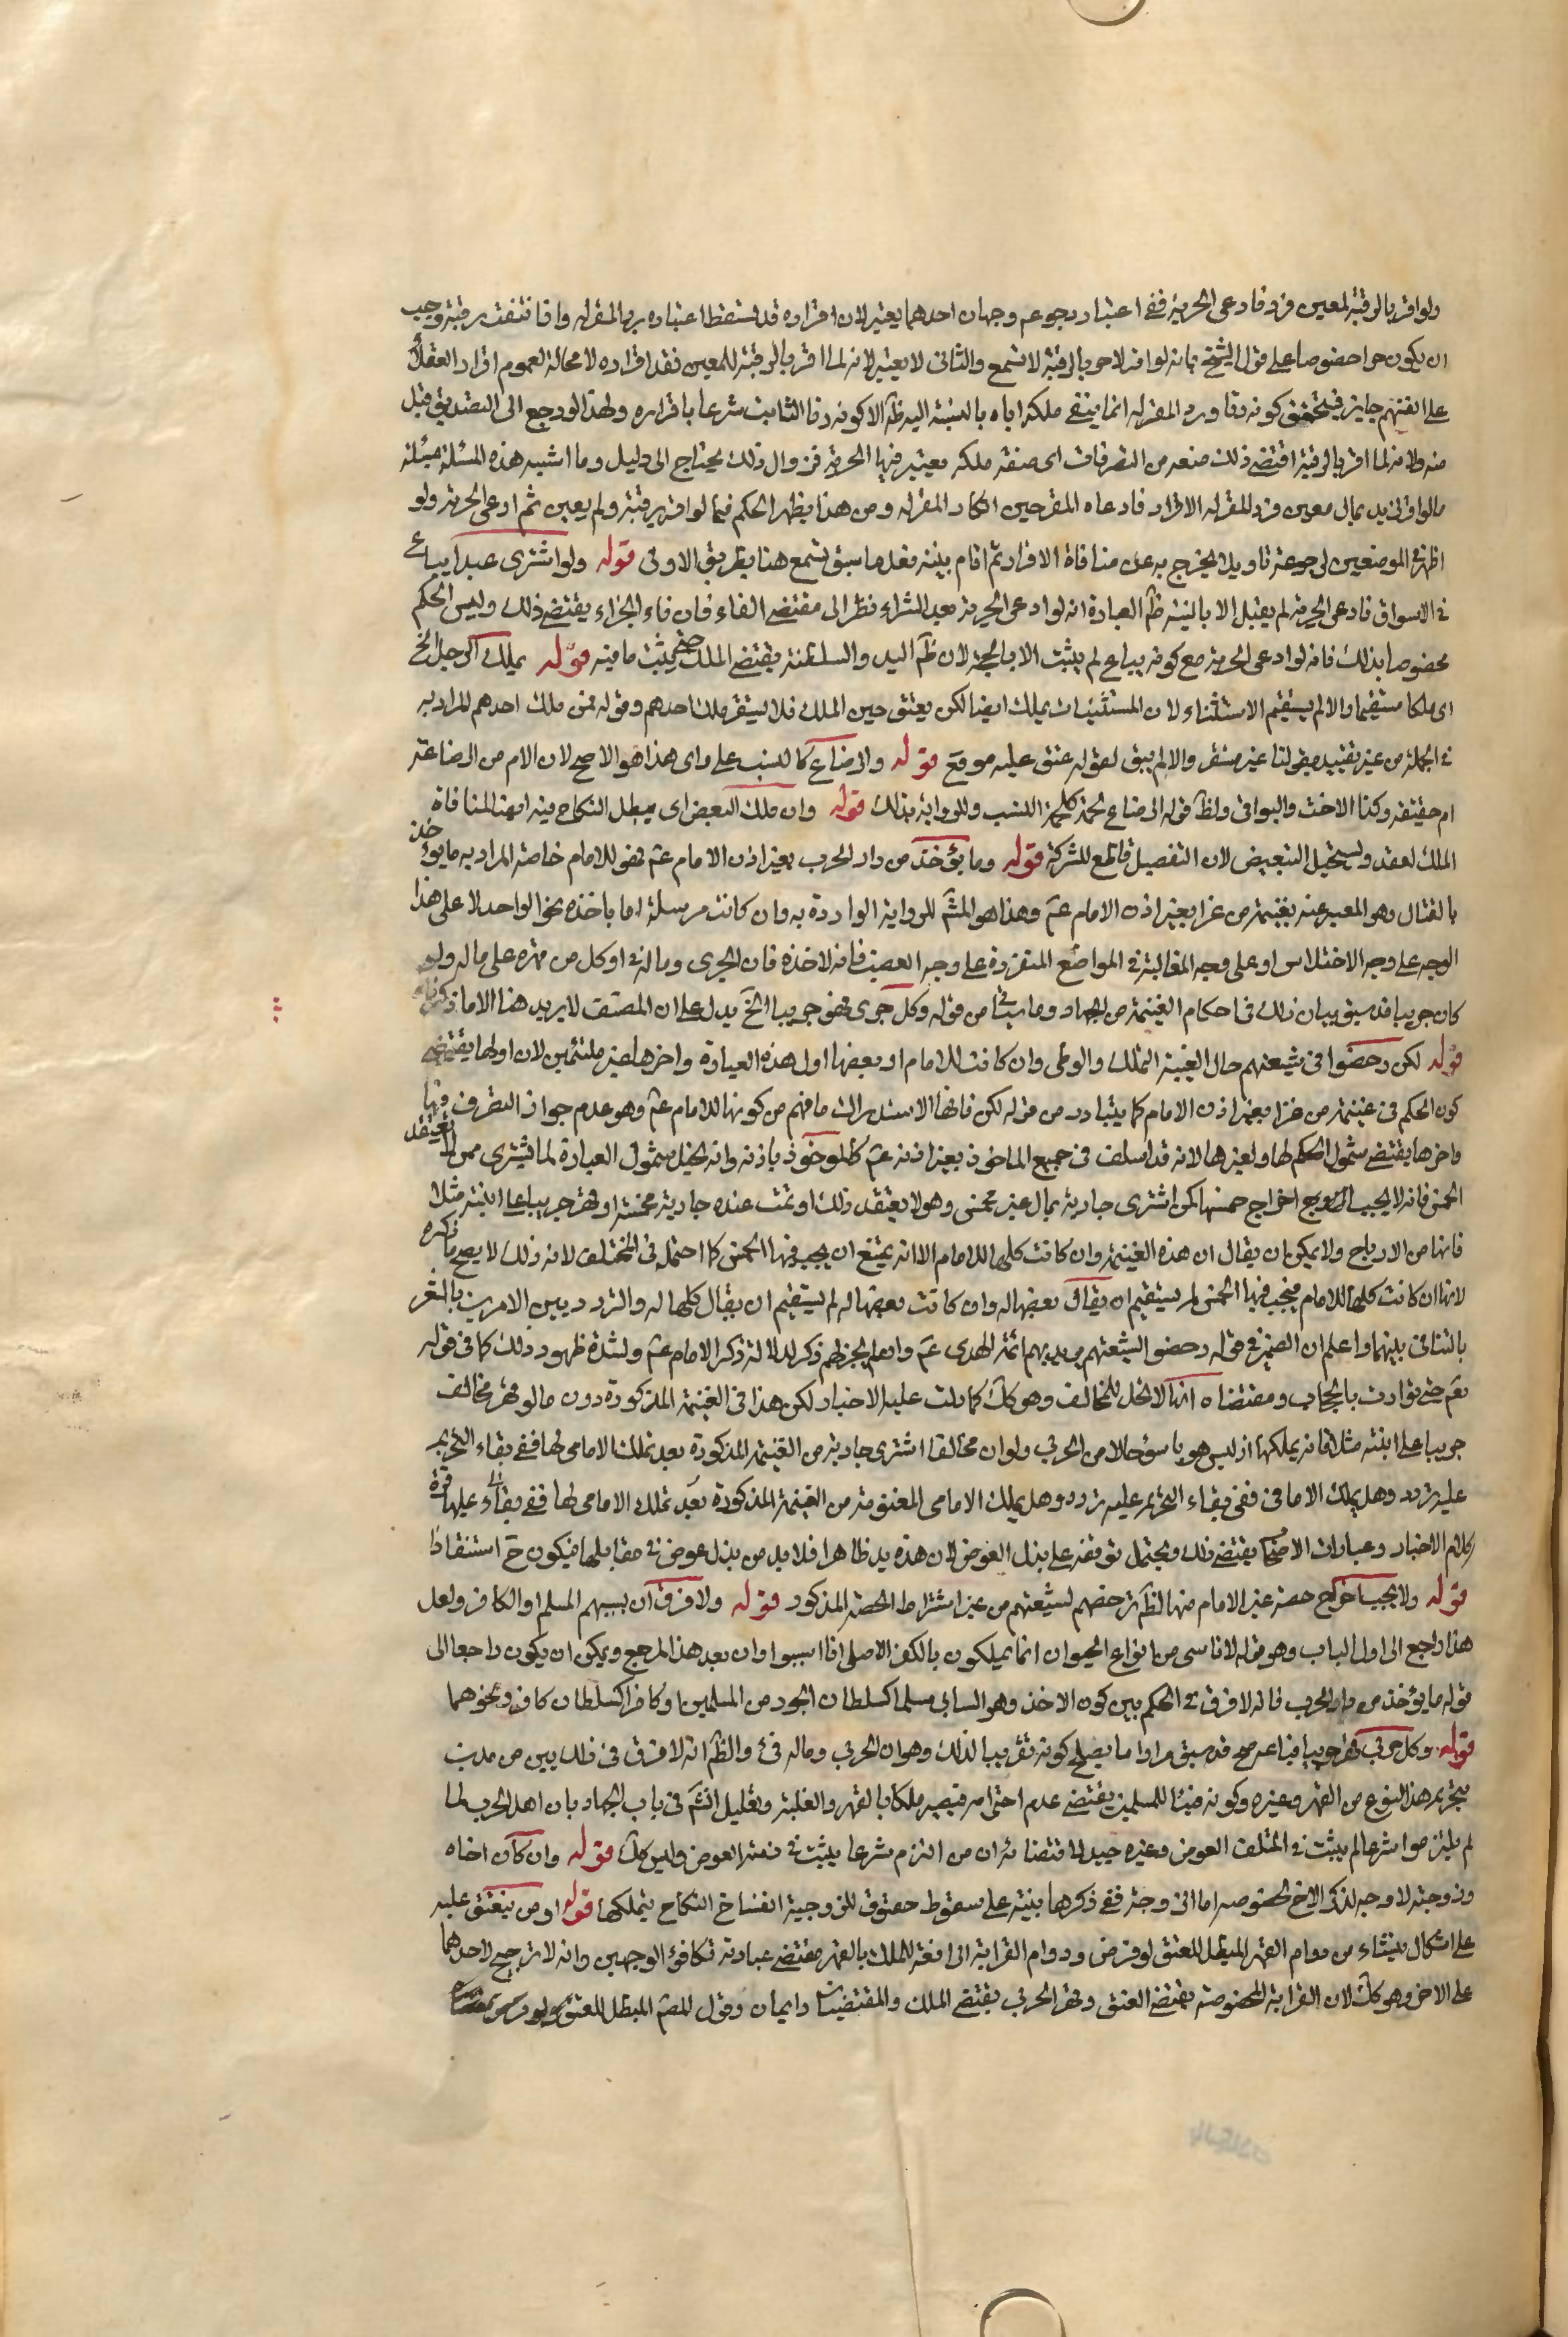 ولو اقر بالرقية لمعين فرد فادعى الحرية ففي اعتبار رجوعه وجهان احدهما يعتبر لان اقراره قد سقط اعتباره برد المقر له واذا انتفت رقيته وجب
ان يكون حرا خصوصا على قول الشيخ بانه لو اقر لاخر بالرقية لا تسمع والثاني لا يعتبر لانه لما اقر بالرقية للمعين فقد اقراره لا محالة لعموم اقرار العقلاء
على انفسهم جايز فيتحقق كونه رقا ورد المقر له انما ينفي ملكه اياه بالنسبة اليه ظآ الا كونه رقا الثابت شرعا باقراره ولهذا لو رجع الى التصديق قبل
منه ولانه لما اقر بالرقية اقتضى ذلك منعه من التصرفات اى صفة ملكه يعتبر فيها الحرية فزوال ذلك يحتاج الى دليل وما اشبه هذه المسئلة بمسئلة
ما لو اقر ذو يد بمال معين فرد المقر له الاقرار فادعاه المقر حين انكار المقر له ومن هذا يظهر الحكم فيما لو اقر برقيته ولم يعين ثم ادعى الحرية ولو
اظهر في الموضعين لرجوعه تاويلا يخرج به عن منافاة الاقرار ثم اقام بينة فعلى ما سبق تسمع هنا بطريق الاولى قوله ولو اشترى عبدا يباع
في الاسواق فادعى الحرية لم يقبل الا بالبينة ظآ العبارة انه لو ادعى الحرية بعد الشراء نظرا الى مقتضى الفاء فان فاء الجزاء يقتضي ذلك وليس الحكم
مخصوصا بذلك فانه لو ادعى الحرية مع كونه يباع لم يثبت الا بالحجة لان ظآ اليد والسلطنة يقتضي الملك حتى يثبت ما فيه قوله يملك الرجل الخ
اى ملكا مستقرا والا لم يستقم الاستثناء لان المستثنيات يملك ايضا لكن يعتق حين الملك فلا يستقر ملك احدهم وقوله فمن ملك احدهم المراد به
في الجملة من غير تقييد بقولنا غير مستقر والا لم يبق لقوله عتق عليه موقع قوله والرضاع كالنسب على راى هذا هو الاصح لان الام من الرضاعة
ام حقيقة وكذا الاخت والبواقى ولظآ قوله الرضاع لحمة كلحمة النسب وللرواية بذلك قوله وان ملك البعض اى يبطل النكاح فيه ايضا لمنافاة
الملك لعقد ويستحيل التبعيض لان التفصيل قاطع للشركة قوله وما يؤخذ من دار الحرب بغير اذن الامام عم فهو للامام خاصة المراد به ما يؤخذ
بالقتال وهو المعبر عنه بغنيمة من غزا بغير اذن الامام عم وهذا هو المشم للرواية الواردة به وان كانت مرسلة اما ياخذه نحو الواحد لا على هذا
الوجه على وجه الاختلاس او على وجه المغالبة في المواضع المنفردة على وجه الغصب فانه لاخذه فان الحربى وماله فئ او كل من قهره على ماله ولو
كان حربيا قد سبق بيان ذلك فى احكام الغنيمة من الجهاد وما سياتى من قوله وكل حربى قهر حربيا الخ يدل على ان المصنف لا يريد هنا الا ما ذكرناه
قوله لكن رخصوا فى شيعتهم حال الغيبة التملك والوطى وان كانت للامام او بعضها اول هذه العبارة واخرها غير ملتئمين لان اولها يقتضى
كون الحكم فى غنيمة من غزا بغير اذن الامام كما يتبادر من قوله لكن فانها الاستدراك ما فهم من كونها للامام عم وهو عدم جواز التصرف فيها
واخرها يقتضى شمول الحكم لها ولغيرها لانه قد اسلف فى جميع الماخوذ بغير اذنه عم كالماخوذ باذنه وانه يختل شمول العبارة لما يشترى ممن لا يعتقد
الخمس فانه لا يجب اخراج خمسها كمن اشترى جارية بمال غير مخمس وهو لا يعتقد ذلك او نمت عنده جارية مخمسة او قهر حربى مباعا ابنته مثلا
فانها من الارباح ولا يمكن ان يقال ان هذه الغنيمة وان كانت كلها للامام الا انه يمتنع ان يجب فيها الخمس كما احتمله فى المختلف لانه ذلك لا يصح ما ذكره
لانها ان كانت كلها للامام فيجب فيها الخمس لم يستقيم ان يقال بعضها له وان كانت بعضها له لم يستقيم ان يقال كلها له والتردد بين الامرين
بالتنافى بينهما واعلم ان الضمير في قوله رخصوا لشيعتهم يريد بهم ائمة الهدى عم وان لم يجز لهم ذكر لدلالة ذكر الامام عم ولشدة ظهور ذلك كما فى قوله
تعم حتى توارت بالحجاب ومقتضاه انها لا تحل للمخالف وهو كك كما دلت عليه الاخبار لكن هذا فى الغنيمة المذكورة دون ما لو قهر مخالف
حربيا على ابنته مثلا فانه يملكها اذ ليس هو باسوء حالا من الحربى ولو ان مخالفا اشترى جارية من الغنيمة المذكورة بعد تملك الامامى لها ففى بقاء التحريم
عليه تردد وهل يملك الامامى ففى بقاء التحريم عليه تردد وهل يملك الامامى المعتق منه من الغنيمة المذكورة بعد تملك الامامى لها ففى بقائه عليها
كلام الاخبار وعبارات الاصحاب يقتضى ذلك ويحتمل توقفه على بذل العوض لان هذه يد ظاهرا فلا بد من بذل عوض فى مقابلها فيكون ح استنقاذا
قوله ولا يجب اخراج حصة غير الامام منها لظآ ترخصهم لشيعتهم من غير اشتراط الحصة المذكور قوله ولا فرق ان يسبيهم المسلم او الكافر ولعل
هذا راجع الى اول الباب وهو قوله لاناسى من انواع الحيوان انما يملكون بالكفر الاصلى اذا سبوا وان بعد هذا المرجع ويمكن ان يكون راجعا الى
قوله ما يؤخذ من دار الحرب فانه لا فرق فى الحكم بين كون الاخذ وهو السابى مسلما كسلطان الجور من المسلمين او كافرا كسلطان كافر ونحوهما
قوله وكل حربى قهر حربيا فباعه صح قد سبق مرارا ما يصلح كونه تقريبا لذلك وهو ان الحربى وماله فئ والظآ انه لا فرق فى ذلك بين من يدين
بتحريم هذا النوع من القهر وغيره وكونه فيئا للمسلمين يقتضى عدم احترامه فيصير ملكا بالقهر والغلبة وتعليل الشم فى باب الجهاد بان اهل الحرب لما
لم يلتزموا شرعا لم يثبت في المتلف العوض وغيره جيد لاقتضائه ان من التزم شرعا يثبت فى ذمته العوض وليس كك قوله وان كان اخاه
وزوجته لا وجه لذكر الاخ لخصوصه اما الزوجة ففى ذكرها بنية على سقوط حقوق الزوجية انفساخ النكاح بتملكها قوله او من ينعتق عليه
على اشكال ينشاء من دوام القهر المبطل للعتق لو فرض ودوام القرابة الرافعة للملك بالقهر مقتضى عبارته تكافؤ الوجهين وانه لا ترجيح لاحدهما
على الاخر وهو كك لان القرابة المخصوصة يقتضى العتق وقهر الحربى يقتضى الملك والمقتضيان دايمان وقول المصم المبطل للعتق لو فرض